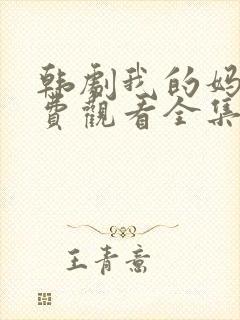 韩剧我的妈
费观看全集
王青意